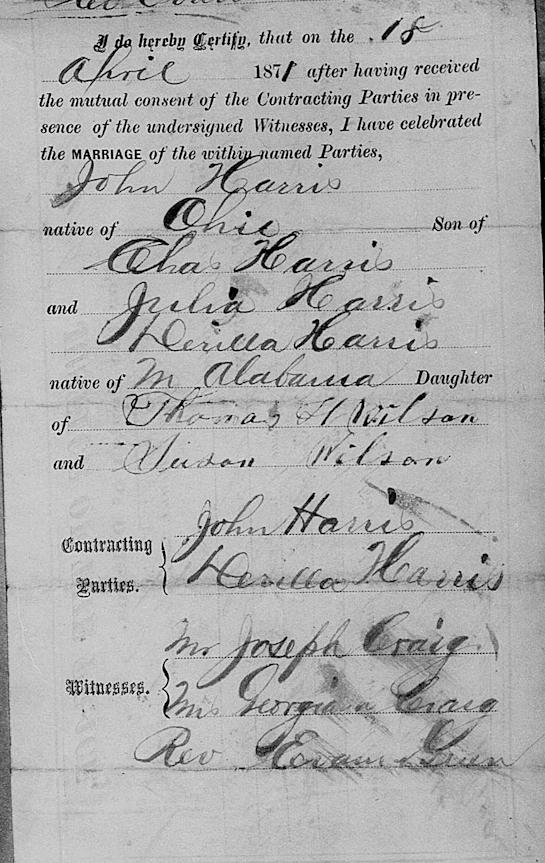 I do hereby Certify, that on the 18
April 1871 after having received
the mutual consent of the Contracting Parties in pre-
sence of the undersigned Witnesses, I have celebrated
the MARRIAGE of the within named Parties,
John Harris
native of Ohio Son of
Chas Harris
and Julia Harris
Harris
native of Alabama Daughter
of Thomas H Wilson
and Susan Wilson
John Harris
Contracting
Parties. Harris
Mr Joseph Craig
Witnesses.
Georgiana Craig
Rev Evans Green